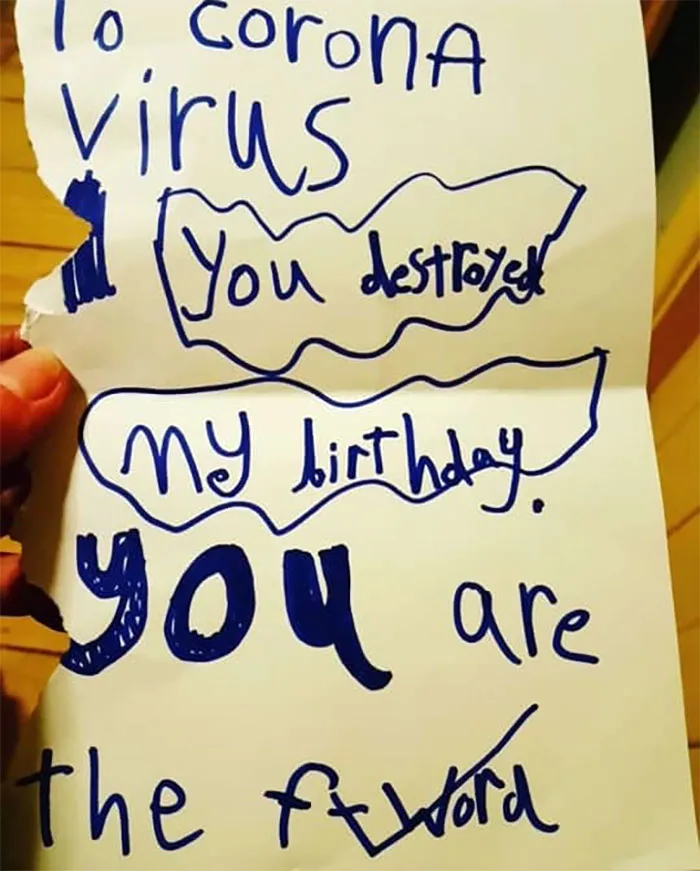 To coronA
virus
You destroyed
My birthday.
you are
the f word